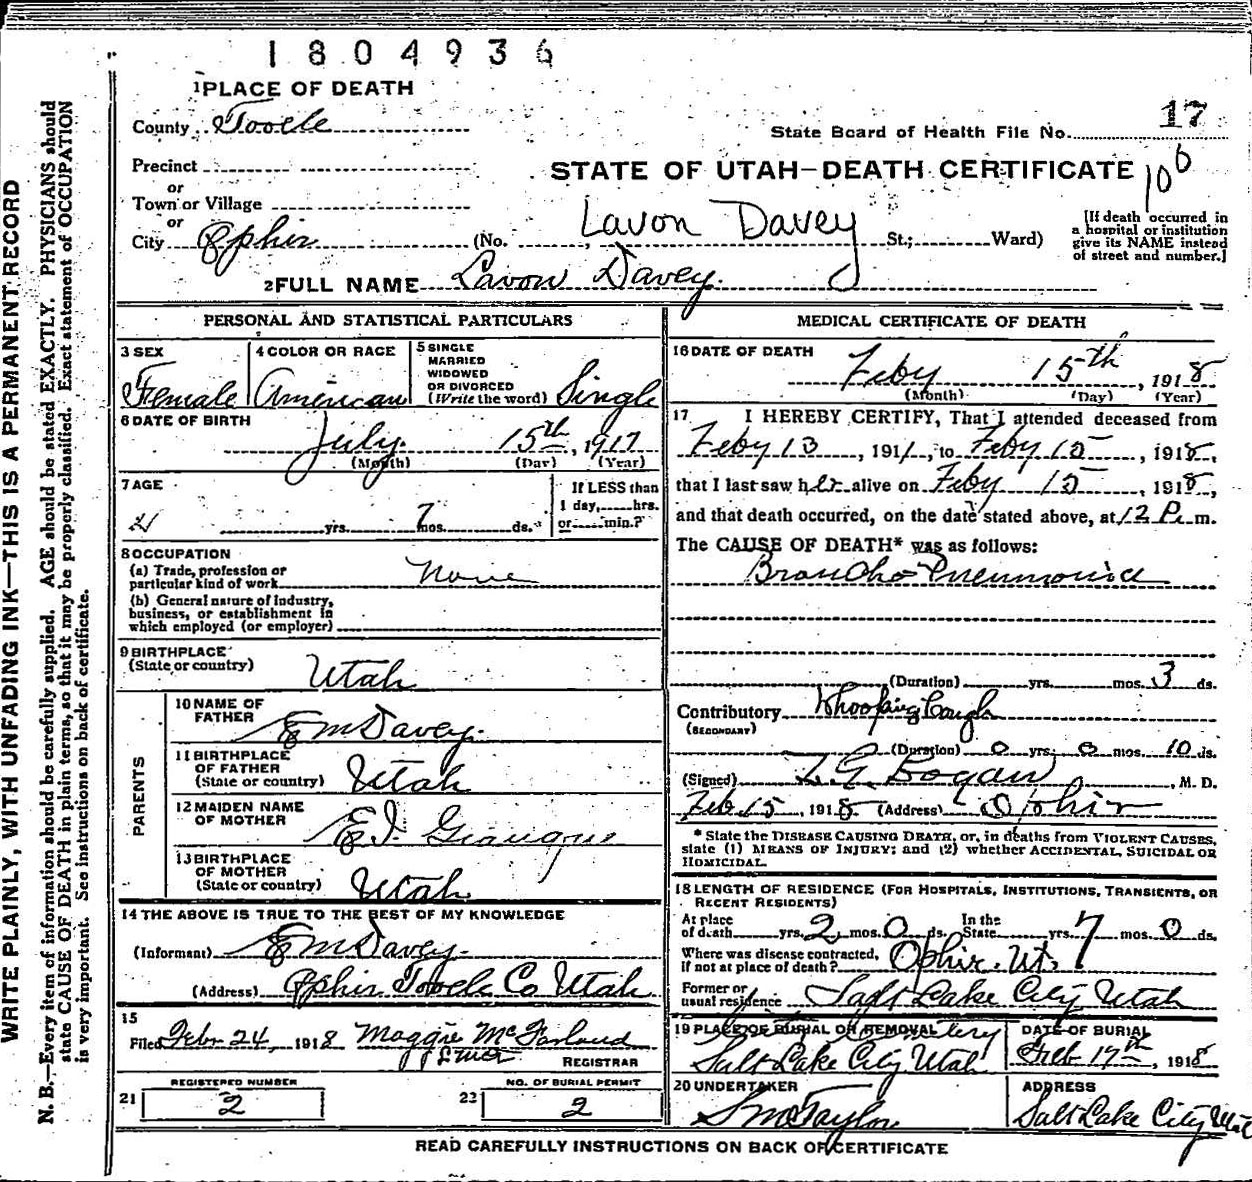 1804936
1 PLACE OF DEATH
County Tooele
State Board of Health File No. 17
Precinct
STATE OF UTAH—DEATH CERTIFICATE
106
or
Town or Village
or
City Ophir (No. Lavon Davey St.; Ward)
[If death occurred in
a hospital or institution
give its NAME instead
of street and number.]
2 FULL NAME Lavon Davey.
PERSONAL AND STATISTICAL PARTICULARS
3 SEX
Female
4 COLOR OR RACE
American
5 SINGLE
MARRIED
WIDOWED
OR DIVORCED
(Write the word) Single
6 DATE OF BIRTH
July. 15th, 1917
(Month) (Day) (Year)
7 AGE
yrs. 7 mos. ds.
If LESS than
1 day, hrs.
or min.?
8 OCCUPATION
(a) Trade, profession or
particular kind of work None
(b) General nature of industry,
business, or establishment in
which employed (or employer)
9 BIRTHPLACE
(State or country) Utah
PARENTS
10 NAME OF
FATHER E M Davey.
11 BIRTHPLACE
OF FATHER
(State or country) Utah
12 MAIDEN NAME
OF MOTHER E. I. Giauque
13 BIRTHPLACE
OF MOTHER
(State or country) Utah
14 THE ABOVE IS TRUE TO THE BEST OF MY KNOWLEDGE
(Informant) E M Davey.
(Address) Ophir Tooele Co Utah
15
Filed Febr 24, 1918 Maggie McFarland
REGISTRAR
REGISTERED NUMBER
21 2
NO. OF BURIAL PERMIT
22 2
MEDICAL CERTIFICATE OF DEATH
16 DATE OF DEATH
Feby 15th, 1918
(Month) (Day) (Year)
17 I HEREBY CERTIFY, That I attended deceased from
Feby 13, 191 , to Feby 15, 1918,
that I last saw her alive on Feby 15, 1918,
and that death occurred, on the date stated above, at 12 P. m.
The CAUSE OF DEATH* was as follows:
Broncho Pneumonia
(Duration) yrs. mos. 3 ds.
Contributory Whooping Cough
(SECONDARY)
(Duration) 0 yrs. 0 mos. 10 ds.
(Signed) Bogan, M. D.
Feb 15, 1918 (Address) Ophir
* State the DISEASE CAUSING DEATH, or, in deaths from VIOLENT CAUSES,
state (1) MEANS OF INJURY; and (2) whether ACCIDENTAL, SUICIDAL OR
HOMICIDAL.
18 LENGTH OF RESIDENCE (FOR HOSPITALS, INSTITUTIONS, TRANSIENTS, OR
RECENT RESIDENTS)
At place
of death yrs. 2 mos. 0 ds.
In the
State yrs. 7 mos. 0 ds.
Where was disease contracted,
if not at place of death? Ophir. Ut.
Former or
usual residence Salt Lake City Utah
19 PLACE OF BURIAL OR REMOVAL
Salt Lake City Utah
DATE OF BURIAL
Feb 17th, 1918
20 UNDERTAKER
S M Taylor
ADDRESS
Salt Lake City Utah
READ CAREFULLY INSTRUCTIONS ON BACK OF CERTIFICATE
WRITE PLAINLY, WITH UNFADING INK—THIS IS A PERMANENT RECORD
N. B.—Every item of information should be carefully supplied. AGE should be stated EXACTLY. PHYSICIANS should
state CAUSE OF DEATH in plain terms, so that it may be properly classified. Exact statement of OCCUPATION
is very important. See instructions on back of certificate.